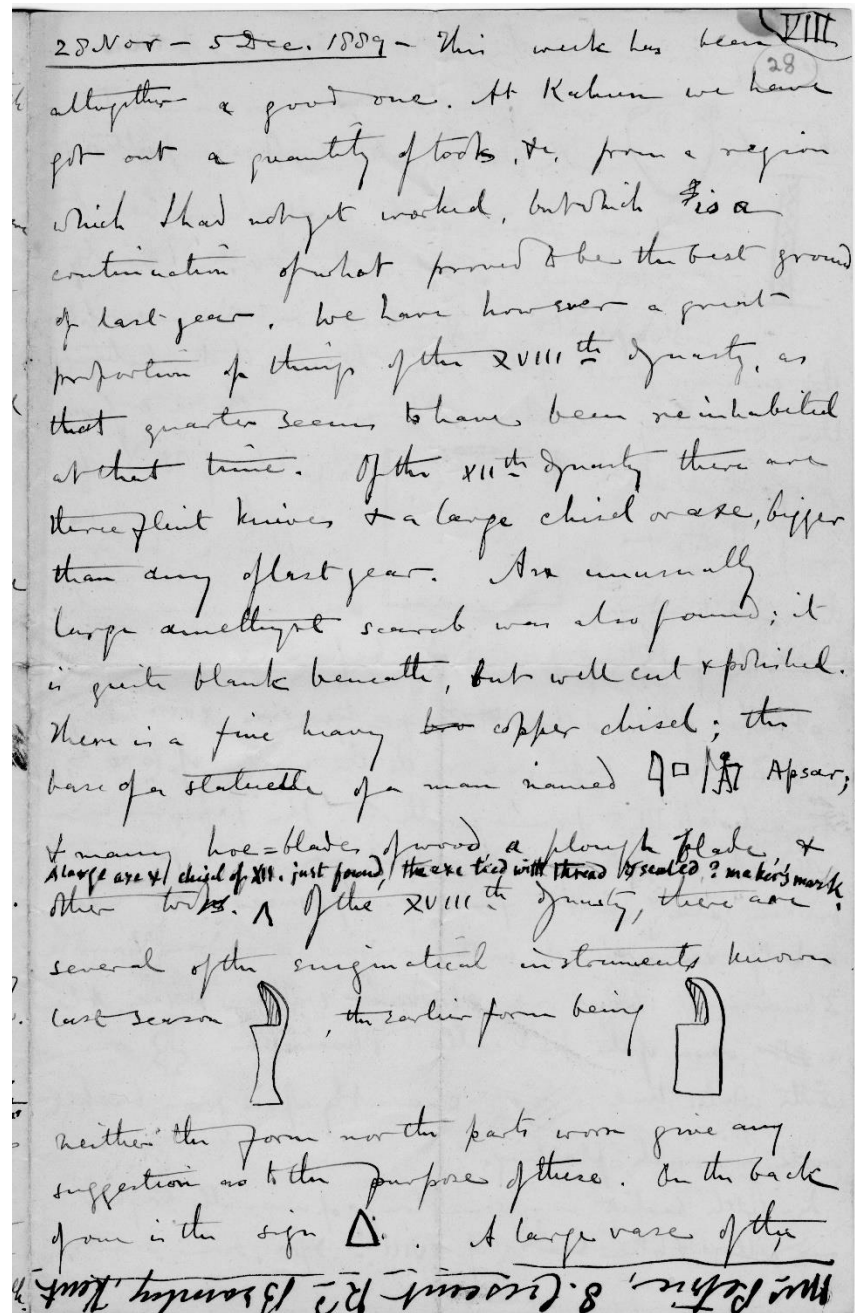 VIII
28
28 Nov – 5 Dec. 1889 – This week has been
altogether a good one. At Kahun we have
got out a quantity of tools, &c, from a region
which I had not yet worked, but which is a
continuation of what proved to be the best ground
of last year. We have however a great
proportion of things of the XVIIIth dynasty, as
that quarter seems to have been reinhabited
at that time. Of the XIIth dynasty there are
three flint knives & a large chisel or axe, bigger
than any of last year. An unusually
large amethyst scarab was also found; it
is quite blank beneath, but well cut & polished.
There is a fine heavy copper chisel; the
base of a statuette of a man named Apsar;
& many hoe=blades of wood, a plough blade &
A large axe & chisel of XII. just found, the axe tied with thread & sealed? maker's mark.
other tools. ʌ Of the XVIIIth dynasty, there are
several of the enigmatical instruments known
last season , the earlier form being
neither the form nor the parts worn give any
suggestion as to the purpose of these. On the back
of one is the sign Δ. A large vase of the
Mrs Petrie, 8. Crescent Rd Bromley, Kent